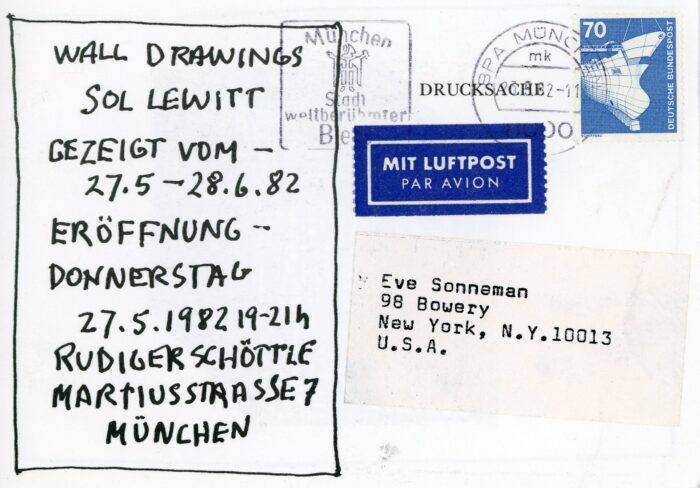 WALL DRAWINGS
SOL LEWITT
GEZEIGT VOM –
27.5 – 28.6.82
ERÖFFNUNG –
DONNERSTAG
27.5.1982 19–21h
RUDIGER SCHÖTTLE
MARTIUSSTRASSE 7
MÜNCHEN
München
Stadt
weltberühmter
DRUCKSACHE
MÜNC
mk
70
DEUTSCHE BUNDESPOST
MIT LUFTPOST
PAR AVION
Eve Sonneman
98 Bowery
New York, N.Y.10013
U.S.A.